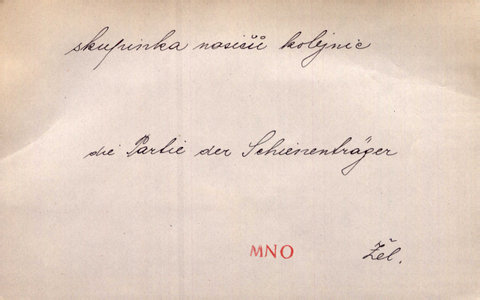 skupinka nosičů kolejnic
die Partie der Schienenträger
MNO
Žel.